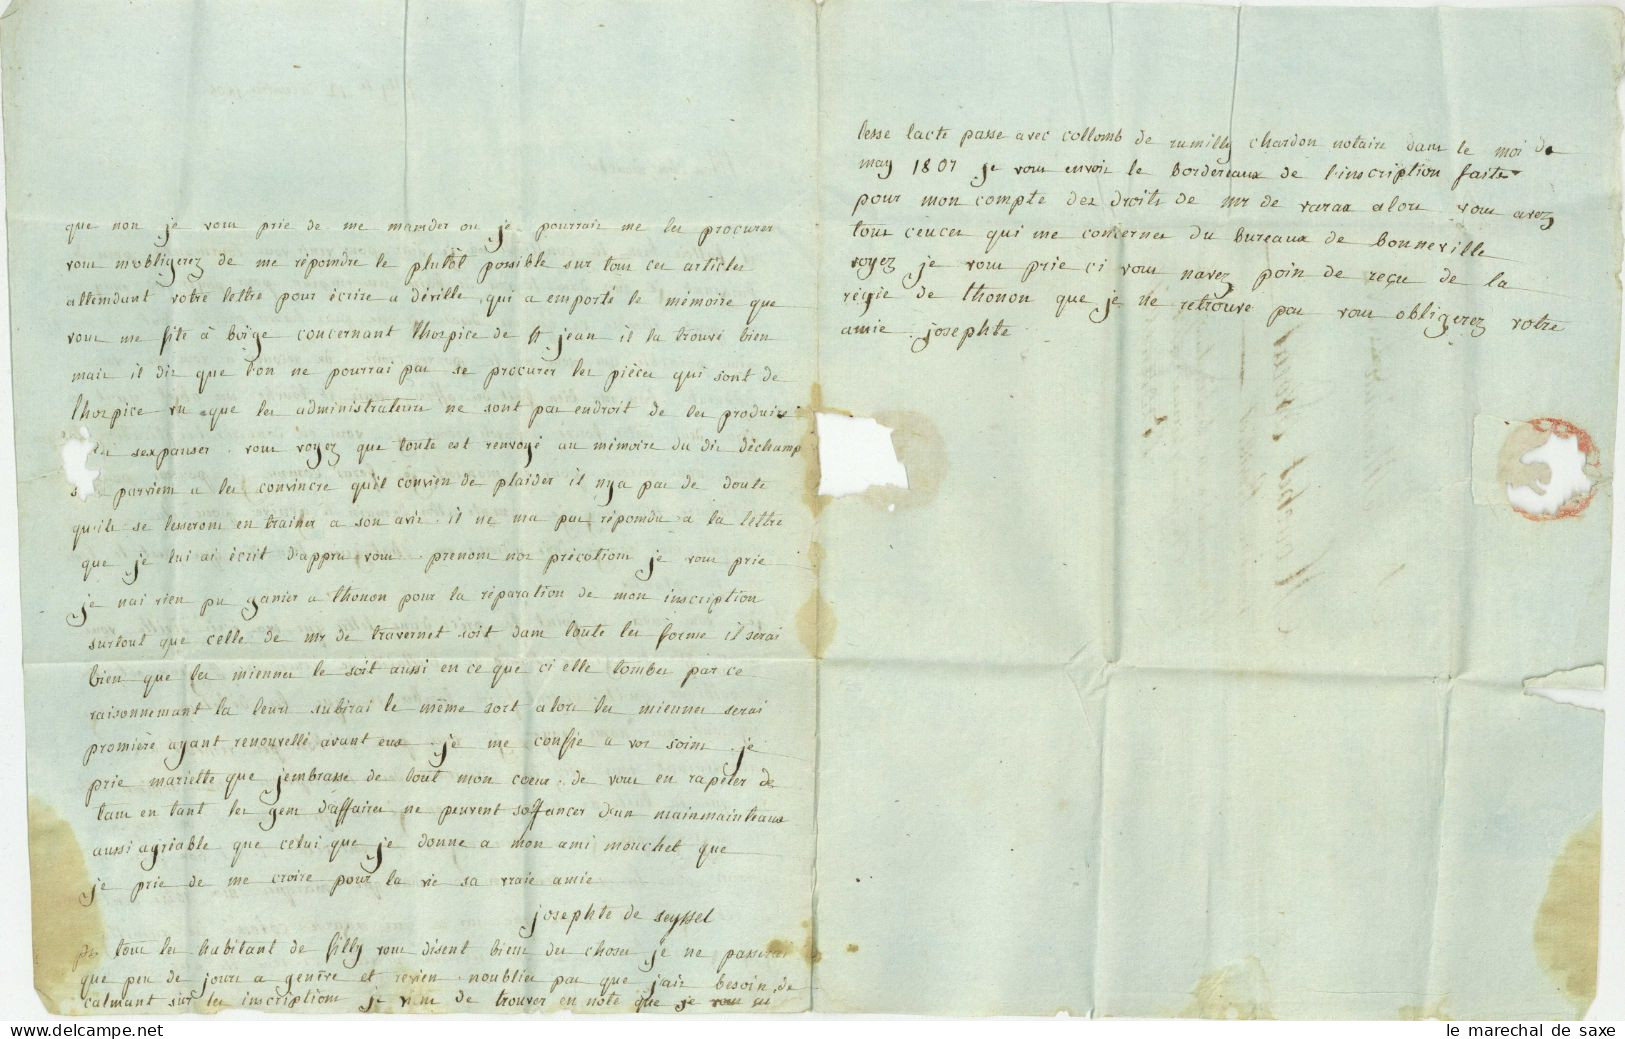 que non je vous prie de me mander ou je pourrais me les procurer
vous mobligerez de me répondre le plutôt possible sur tous ces articles
attendant votre lettre pour écrire a déville qui a emporté le mémoire que
vous me fite à boïge concernant lhospice de st jean il la trouvé bien
mais il dis que l'on ne pourrai pas se procurer les pièces qui sont de
lhospice vu que les administrateurs ne sont pas endroit de les produire
sexpauser . vous voyez que toute est renvoyé au mémoire du dis déchamp
parviens a les convincre quil convien de plaider il nya pas de doute
quils se lesserons en trainer a son avis . il ne ma pas répondu a la lettre
que je lui ai écrit d'appru vous . prenons nos précotions je vous prie
je nai rien pu ganier a thonon pour la réparation de mon inscription
surtout que celle de mr de travernet soit dans toute les forme il serai
bien que les miennes le soit aussi en ce que ci elle tombes par ce
raisonnemant la leurs subirai le même sort alors les miennes serai
promière ayant renouvellé avant eux . je me confie a vos soins . je
prie mariette que jembrasse de tout mon coeur . de vous en rapeler de
tans en tant les gens d'affaires ne peuvent soffancer d'un mainmainteaux
aussi agriable que celui que je donne a mon ami mouchet que
je prie de me croire pour la vie sa vraie amie
josephte de seyssel
ps tous les habitant de filly vous disent bien des choses je ne passerai
que peu de jours a genêve et revien . noublies pas que jais besoin de
calmant sur les inscriptions je viens de trouver en note que je vous ai
lesse lacte passe avec collomb de rumilly chardon notaire dans le moi de
may 1807 je vous envois le bordereaux de l'inscription faite
pour mon compte des droits de mr de varax alors vous avez
tous ceuces qui me concernes du bureaux de bonneville
voyez je vous prie ci vous navez poin de reçu de la
régie de thonon que je ne retrouve pas vous obligerez votre
amie . josephte
le marechal de saxe